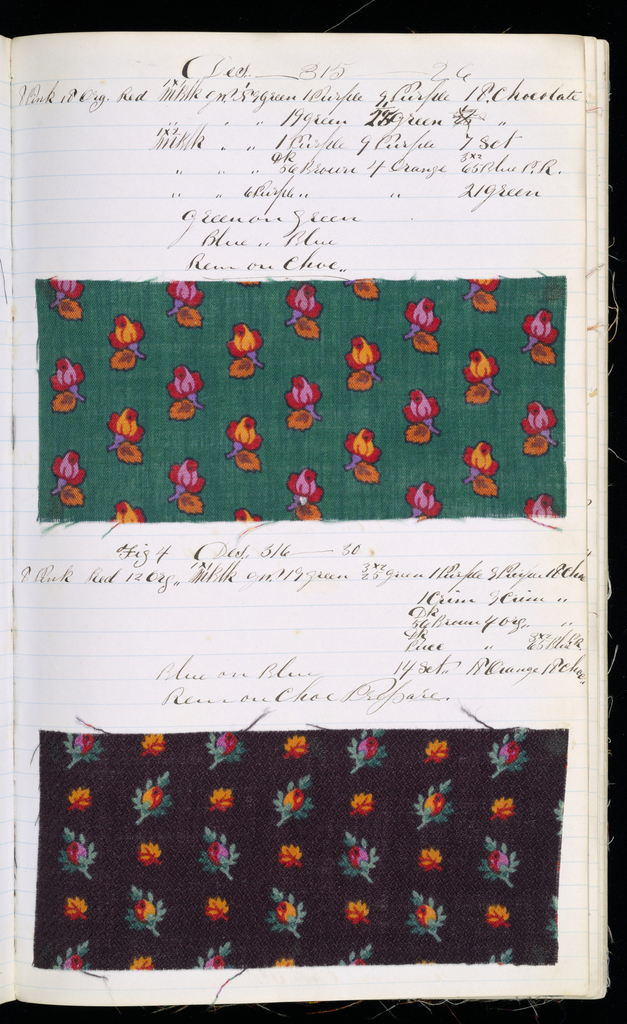 Des. 315 26
Pink 18 Org. Red 1x1 M Blk gr. 19 green 1 Purple 9 Purple 18. Chocolate
" " " 19 green 28 green "
1x2 M Blk " " 1 Purple 9 Purple 7 Set
" " " Dk 56 Brown 4 Orange 3x2 65 Blue P.R.
" " 6 Purple " " 21 green
Green on Green
Blue " Blue
Rem on Choc "
Fig 4 Des. 316 30
Pink Red 12 Org " M Blk 19 green 3x2 25 green 1 Purple 9 Purple 18 Choc
1 Crim 3 Crim "
Dk 56 Brown 4 Org. "
Dk Puce " 3x2 65 Blue
Blue on Blue 14 Set " 18 Orange 18 Choc "
Rem on Choc Prepare.